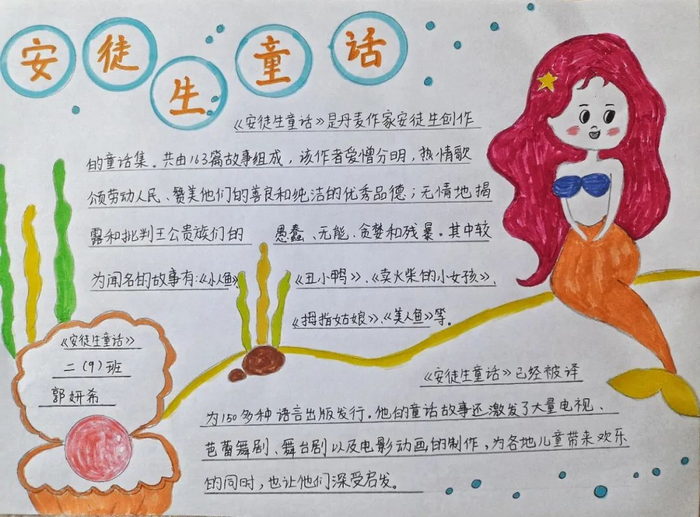 安徒生童话
《安徒生童话》是丹麦作家安徒生创作
的童话集。共由163篇故事组成，该作者爱憎分明，热情歌
颂劳动人民、赞美他们的善良和纯洁的优秀品德；无情地揭
露和批判王公贵族们的 愚蠢、无能、贪婪和残暴。其中较
为闻名的故事有：《小人鱼》 《丑小鸭》、《卖火柴的小女孩》、
《拇指姑娘》、《美人鱼》等。
《安徒生童话》
二（9）班
郭妍希
《安徒生童话》已经被译
为150多种语言出版发行。他的童话故事还激发了大量电视、
芭蕾舞剧、舞台剧以及电影动画的制作，为各地儿童带来欢乐
的同时，也让他们深受启发。